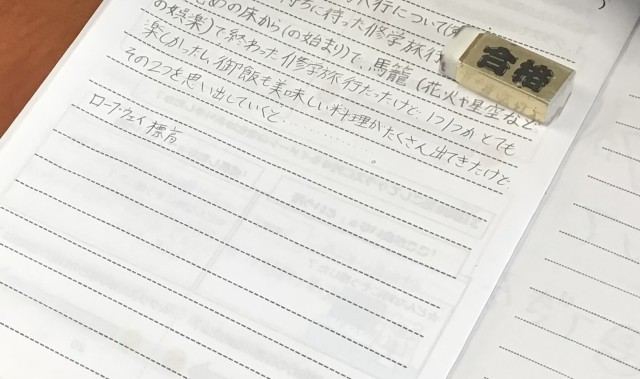 行について
待ちに待った修学旅行
の床から(の始まり)で、馬籠(花火や星空など
の娯楽)で終わった修学旅行だったけど、1つ1つがとても
楽しかったし、御飯も美味しい料理がたくさん出てきたけど、
その2つを思い出していくと............。
ロープウェイ標高
合格